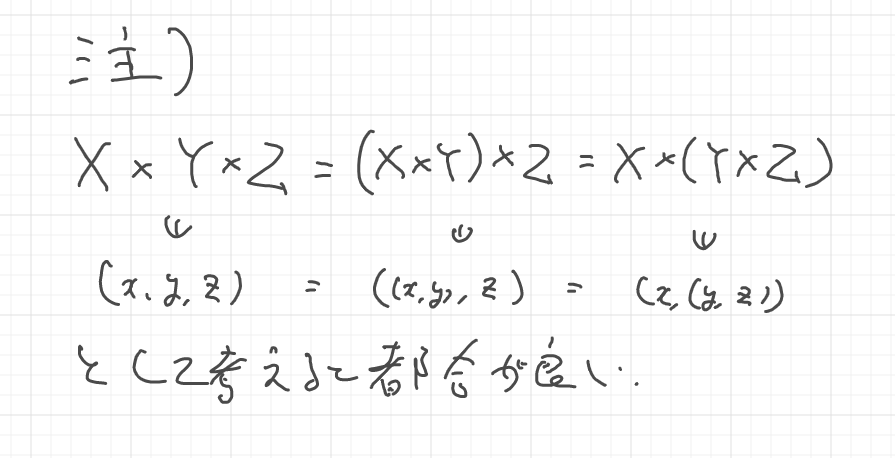 注)
X × Y × Z = (X × Y) × Z = X × (Y × Z)
∪ ∪ ∪
(x, y, z) = ((x, y), z) = (x, (y, z))
として考えると都合が良い.